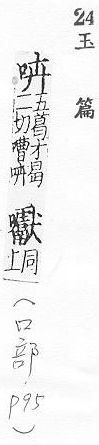 24
玉篇
五葛才曷
二切嘈
囐
同
上
（口部，p95）